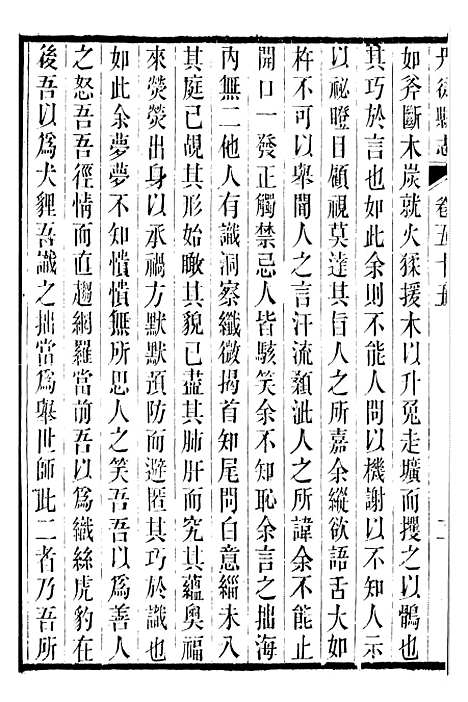 丹徒縣志 卷五十五
如斧斷木炭就火猱援木以升兔走壙而攫之以鶻也
其巧於言也如此余則不能人問以機謝以不知人示
以祕瞪目傾視莫達其旨人之所嘉余縱欲語舌大如
杵不可以舉聞人之言汗流顙泚人之所諱余不能止
開口一發正觸禁忌人皆駭笑余不知恥余言之拙海
內無二他人有識洞察纖微揭首知尾問白意緇未入
其庭已覘其形始瞰其貌已盡其肺肝而究其蘊奧福
來熒熒出身以承禍方默默預防而避匿其巧於識也
如此余夢夢不知憒憒無所思人之笑吾吾以為善人
之怒吾吾徑情而直趨網羅當前吾以為織絲虎豹在
後吾以為犬貍吾識之拙當為舉世師此二者乃吾所